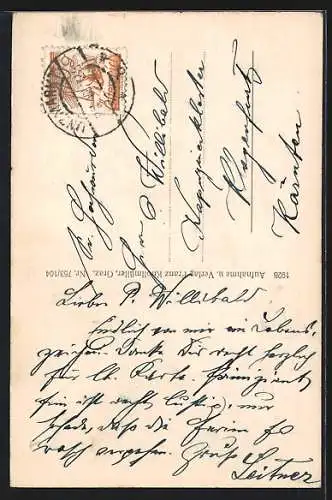 Sr. Hochwürden
P. Willibald
Kapuzinerkloster
Klagenfurt
Kärnten
1926 Aufnahme u. Verlag Franz Knollmüller, Graz. Nr. 753/104
Lieber P. Willibald.
Endlich von mir ein Lebens-
zeichen. Danke Dir recht herzlich
für lb. Karte.
sein ist recht lustig, nur
schade, dass die Ferien so
rasch vergehen. Gruß
Leitner